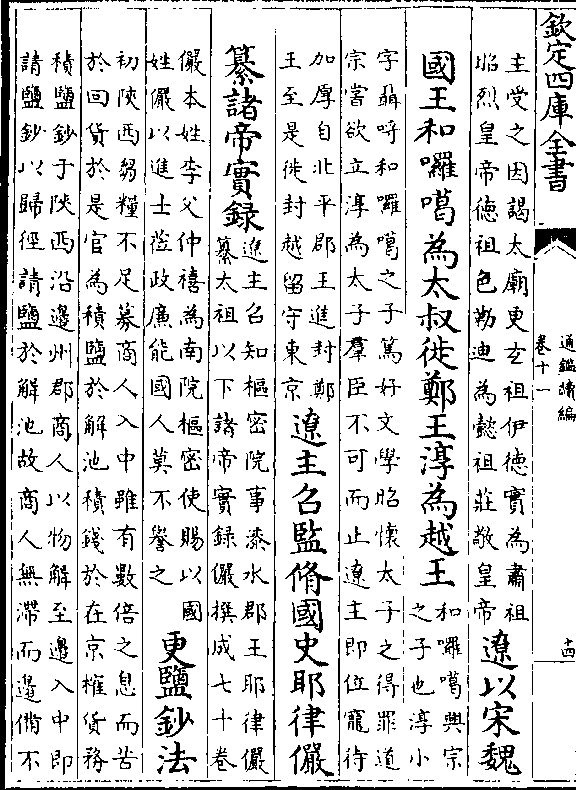 欽定四庫全書
通鑑續編
卷十一
十四
主受之因謁太廟更玄祖伊德實為肅祖
昭烈皇帝德祖色勒迪為懿祖莊敬皇帝
遼以宋魏
國王和囉噶為太叔徙鄭王淳為越王
和囉噶興宗
之子也淳小
字聶呼和囉噶之子篤好文學昭懷太子之得罪道
宗嘗欲立淳為太子羣臣不可而止遼主即位寵待
加厚自北平郡王進封鄭
王至是徙封越留守東京
遼主召監脩國史耶律儼
纂諸帝實録
遼主召知樞密院事漆水郡王耶律儼
纂太祖以下諸帝實録儼撰成七十卷
儼本姓李父仲禧為南院樞密使賜以國
姓儼以進士蒞政廉能國人莫不譽之
更鹽鈔法
初陝西芻糧不足募商人入中雖有數倍之息而苦
於回貨於是官為積鹽於解池積錢於在京榷貨務
積鹽鈔于陝西沿邊州郡商人以物解至邊入中即
請鹽鈔以歸徑請鹽於解池故商人無滯而邊備不